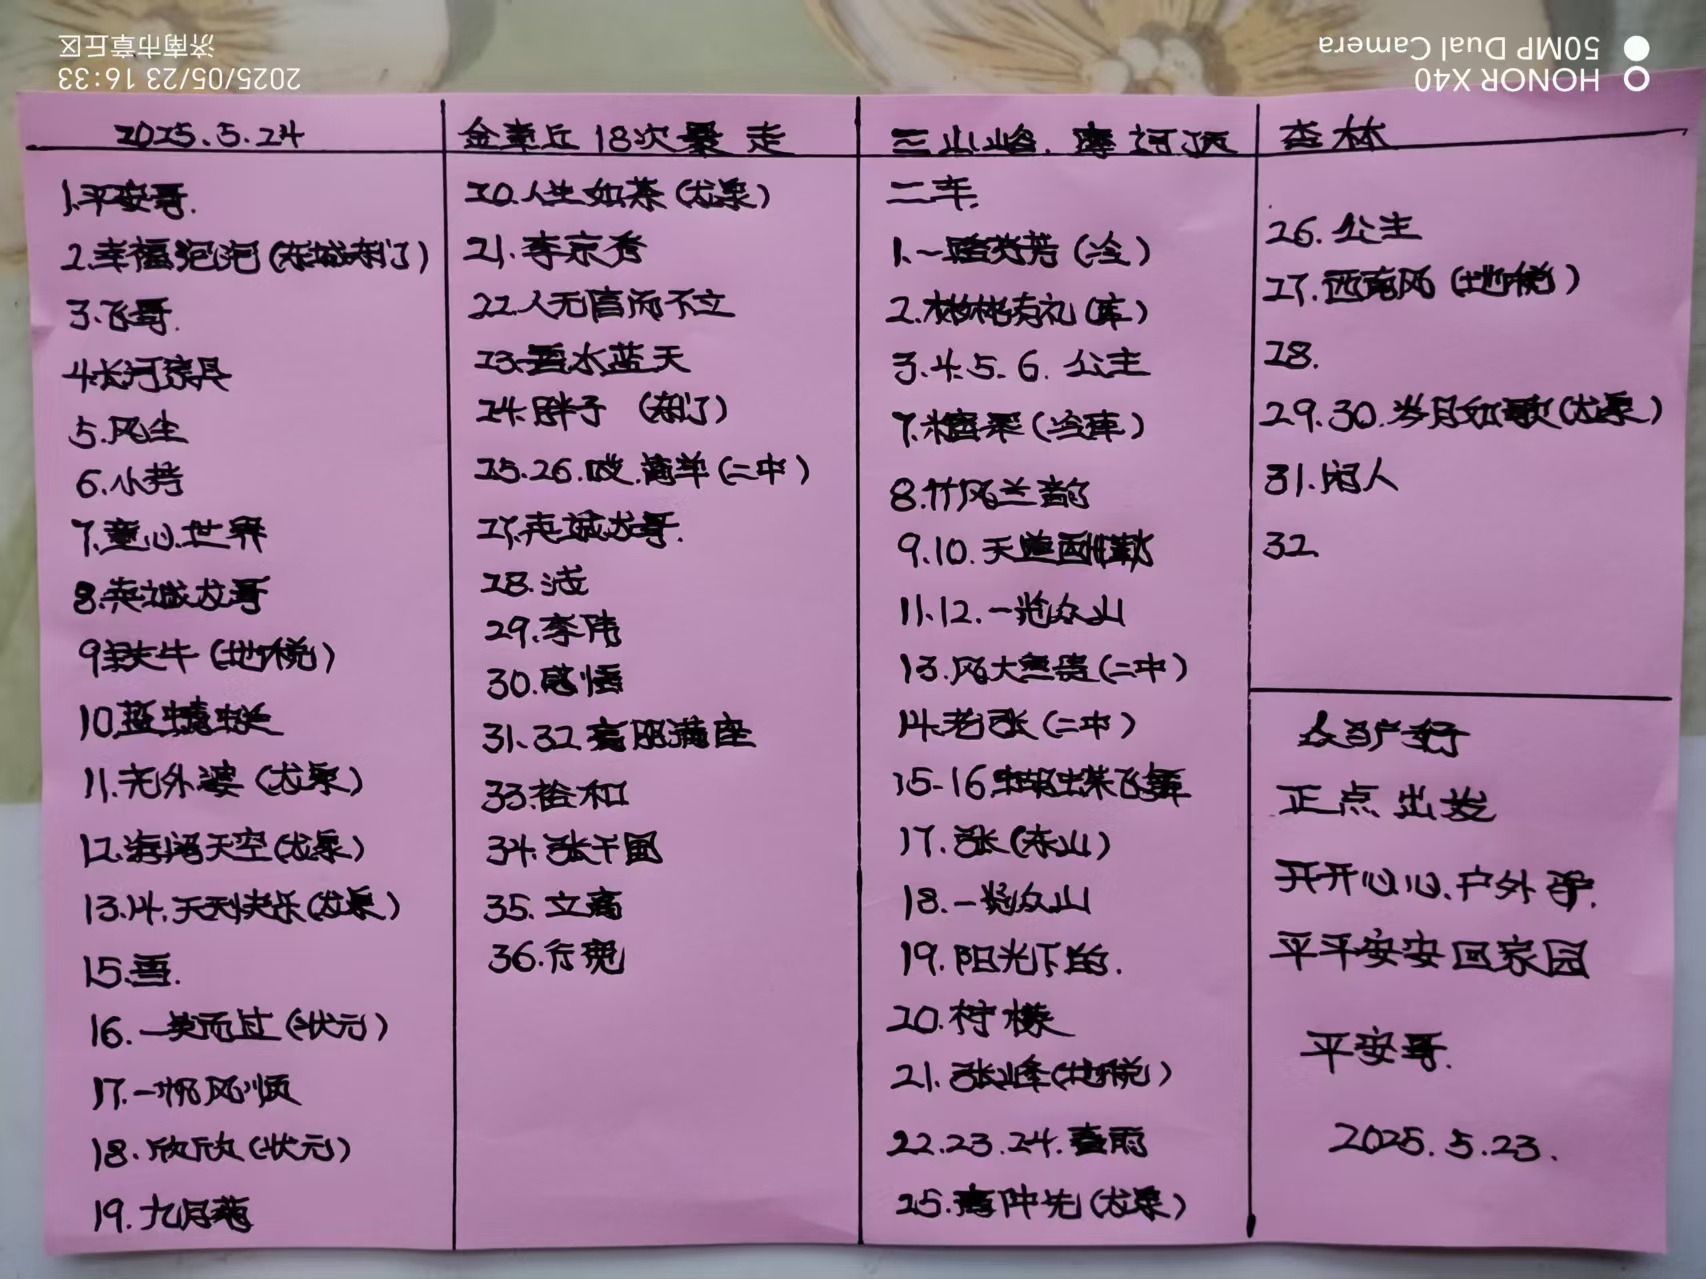 2025.5.24
金章丘18次暴走
三山峪.摩诃顶
森林
1.平安哥.
2.幸福泡泡(东城东门)
3.飞哥.
4.长河渔具
5.风尘
6.小荷
7.童心世界
8.英诚龙哥
9.铁牛(地税)
10.蓝蜻蜓
11.老外婆(龙泉)
12.海阔天空(龙泉)
13.14.天天快乐(龙泉)
15.雪.
16.一笑而过(状元)
17.一帆风顺
18.欣欣(状元)
19.九月菊
20.人生如茶(龙泉)
21.李京秀
22.人无信而不立
23.碧水蓝天
24.胖子(东门)
25.26.哎.简单(二中)
27.英诚龙哥.
28.洁
29.李伟
30.感悟
31.32高朋满座
33.拾和
34.张干国
35.立高
36.行宽
二车.
1.一路芬芳(冷)
2.彬彬有礼(库)
3.4.5.6.公主
7.糖果(冷库)
8.竹风兰韵
9.10.天道酬勤
11.12.一览众山
13.风大无语(二中)
14.老张(二中)
15-16.蝴蝶飞舞
17.张(东山)
18.一览众山
19.阳光下的.
20.柠檬
21.张峰(地税)
22.23.24.春雨
25.高仲先(龙泉)
26.公主
27.西南风(地税)
28.
29.30.岁月如歌(龙泉)
31.闲人
32
众驴好
正点出发
开开心心.户外.
平平安安回家园
平安哥.
2025.5.23.
HONOR X40
50MP Dual Camera
2025/05/23 16:33
济南市章丘区